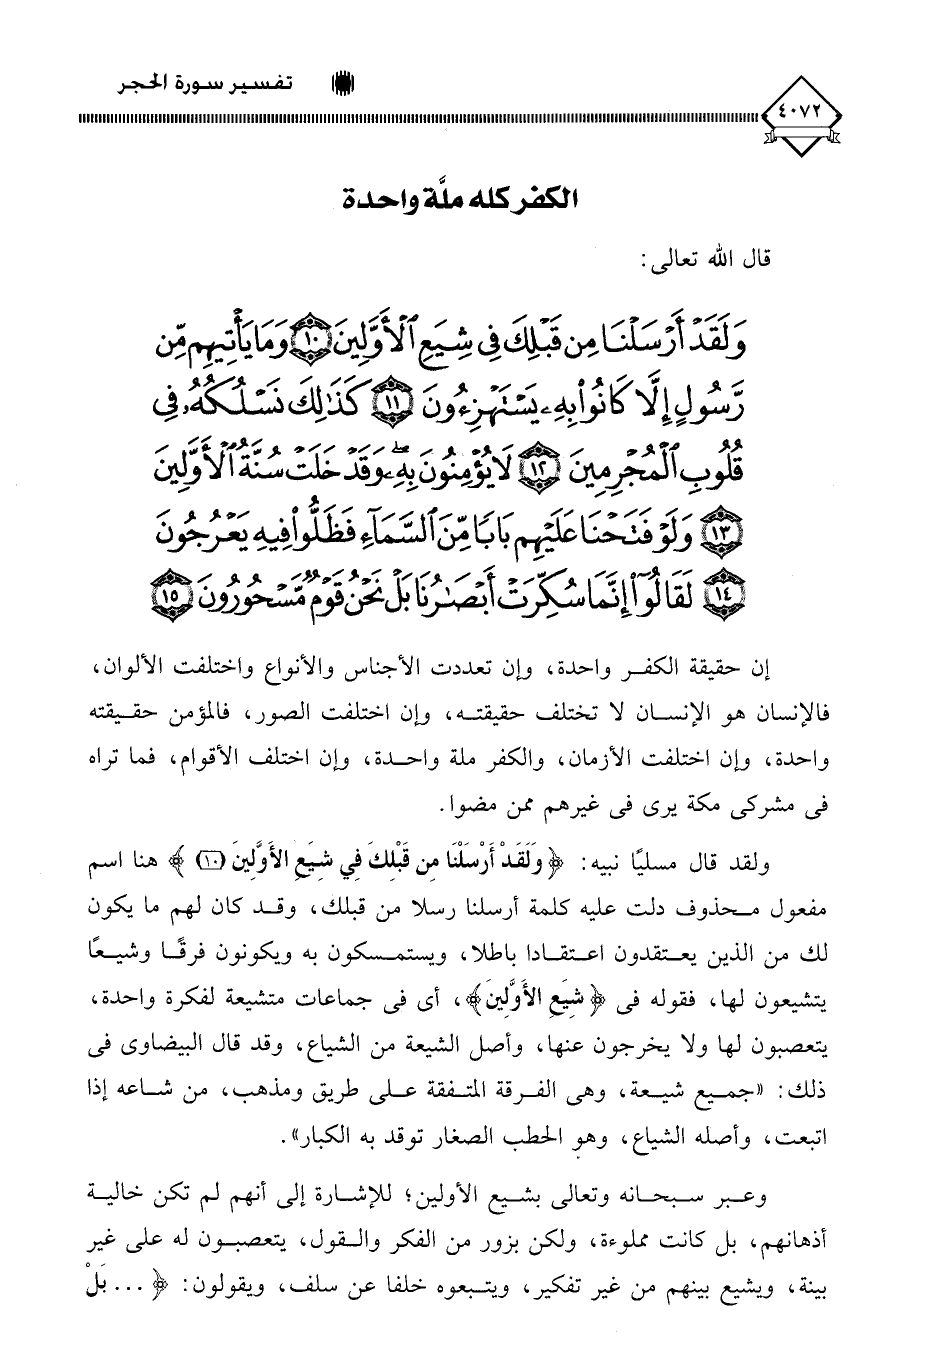 تفسير سورة الحجر
٤٠٧٢
الكفر كله ملَّة واحدة
قال الله تعالى:
وَلَقَدْ أَرْسَلْنَا مِن قَبْلِكَ فِى شِيَعِ ٱلْأَوَّلِينَ ١٠ وَمَا يَأْتِيهِم مِّن
رَّسُولٍ إِلَّا كَانُوا۟ بِهِۦ يَسْتَهْزِءُونَ ١١ كَذَٰلِكَ نَسْلُكُهُۥ فِى
قُلُوبِ ٱلْمُجْرِمِينَ ١٢ لَا يُؤْمِنُونَ بِهِۦ ۖ وَقَدْ خَلَتْ سُنَّةُ ٱلْأَوَّلِينَ
١٣ وَلَوْ فَتَحْنَا عَلَيْهِم بَابًا مِّنَ ٱلسَّمَآءِ فَظَلُّوا۟ فِيهِ يَعْرُجُونَ
١٤ لَقَالُوٓا۟ إِنَّمَا سُكِّرَتْ أَبْصَٰرُنَا بَلْ نَحْنُ قَوْمٌ مَّسْحُورُونَ ١٥
إن حقيقة الكفر واحدة، وإن تعددت الأجناس والأنواع واختلفت الألوان،
فالإنسان هو الإنسان لا تختلف حقيقته، وإن اختلفت الصور، فالمؤمن حقيقته
واحدة، وإن اختلفت الأزمان، والكفر ملة واحدة، وإن اختلف الأقوام، فما تراه
فى مشركى مكة يرى فى غيرهم ممن مضوا.
ولقد قال مسليًا نبيه: ﴿وَلَقَدْ أَرْسَلْنَا مِن قَبْلِكَ فِي شِيَعِ الأَوَّلِينَ (١٠)﴾ هنا اسم
مفعول محذوف دلت عليه كلمة أرسلنا رسلا من قبلك، وقد كان لهم ما يكون
لك من الذين يعتقدون اعتقادا باطلا، ويستمسكون به ويكونون فرقًا وشيعًا
يتشيعون لها، فقوله فى ﴿شِيَعِ الأَوَّلِينَ﴾، أى فى جماعات متشيعة لفكرة واحدة،
يتعصبون لها ولا يخرجون عنها، وأصل الشيعة من الشياع، وقد قال البيضاوى فى
ذلك: «جميع شيعة، وهى الفرقة المتفقة على طريق ومذهب، من شاعه إذا
اتبعت، وأصله الشياع، وهو الحطب الصغار توقد به الكبار».
وعبر سبحانه وتعالى بشيع الأولين؛ للإشارة إلى أنهم لم تكن خالية
أذهانهم، بل كانت مملوءة، ولكن بزور من الفكر والقول، يتعصبون له على غير
بينة، ويشيع بينهم من غير تفكير، ويتبعوه خلفا عن سلف، ويقولون: ﴿... بَلْ